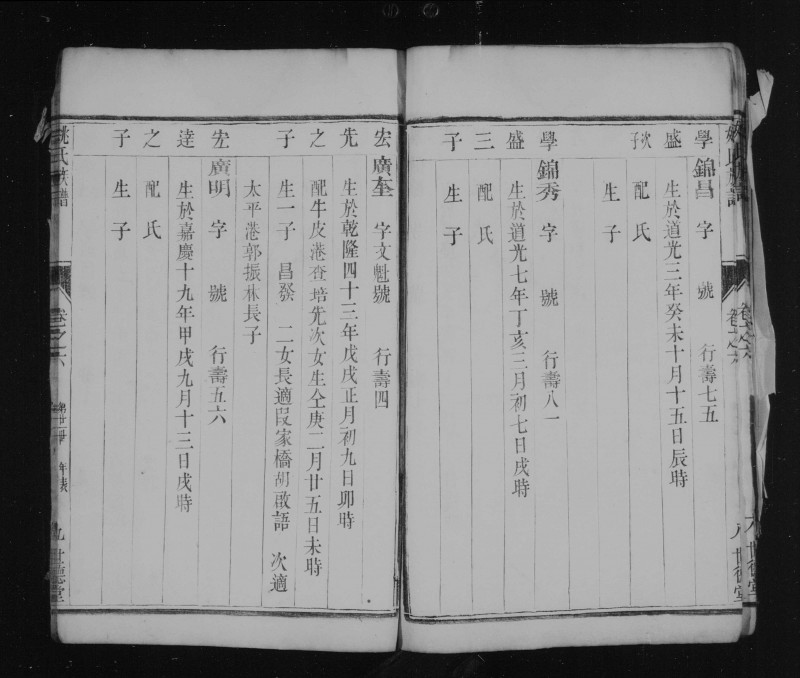 學盛秋子
錦昌 字 號 行壽七五
生於道光三年癸未十月十五日辰時
配氏
生子
學盛三子
錦秀 字 號 行壽八一
生於道光七年丁亥三月初七日戌時
配氏
生子
宏先之子
廣奎 字文魁號 行壽四
生於乾隆四十三年戊戌正月初九日卯時
配牛皮港查培先次女生仝庚二月廿五日未時
生一子 昌發 二女長適段家橋胡啟語 次適
太平港郭振林長子
宏達之子
廣明 字 號 行壽五六
生於嘉慶十九年甲戌九月十三日戌時
配氏
生子
姚氏族譜
卷之六
年表
九 世德堂